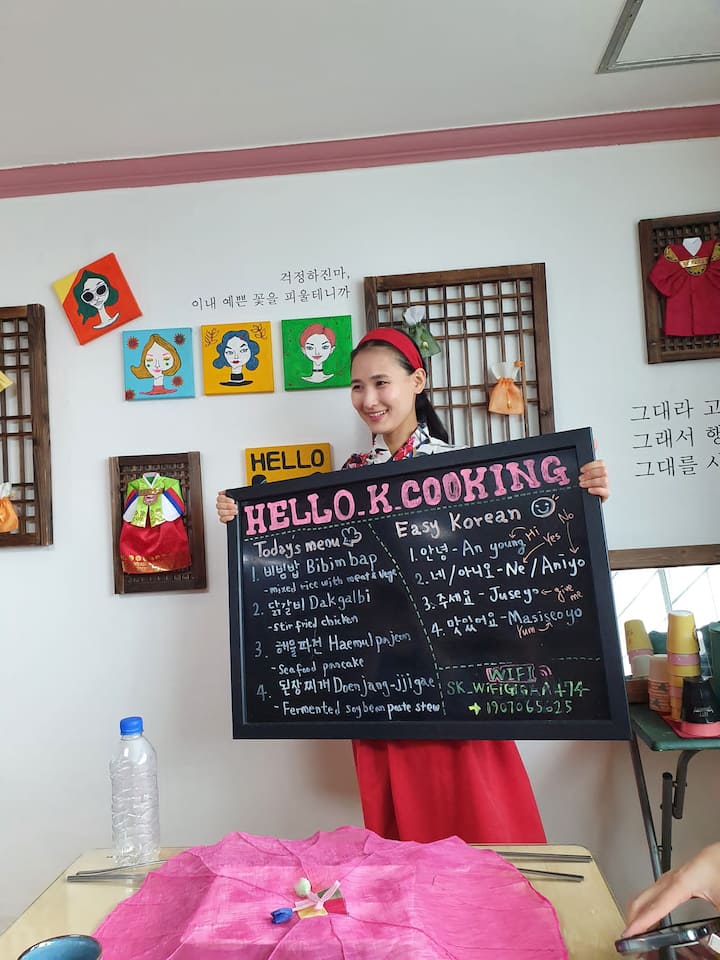 걱정하진마,
이내 예쁜 꽃을 피울테니까
그대라 고
그래서 행
그대를 사
HELLO
HELLO_K_COOKING
Todays menu
1. 비빔밥 Bibimbap
- mixed rice with meat & vege
2. 닭갈비 Dakgalbi
- stir fried chicken
3. 해물파전 Haemulpajeon
- Seafood pancake
4. 된장찌개 Doenjang-jjigae
- Fermented soybean paste stew
Easy Korean
1. 안녕 - An young Hi
2. 네/아니요 - Ne / Aniyo Yes No
3. 주세요 - Juseyo give me
4. 맛있어요 - Masiseoyo
Yum
WIFI
→ 1907065625